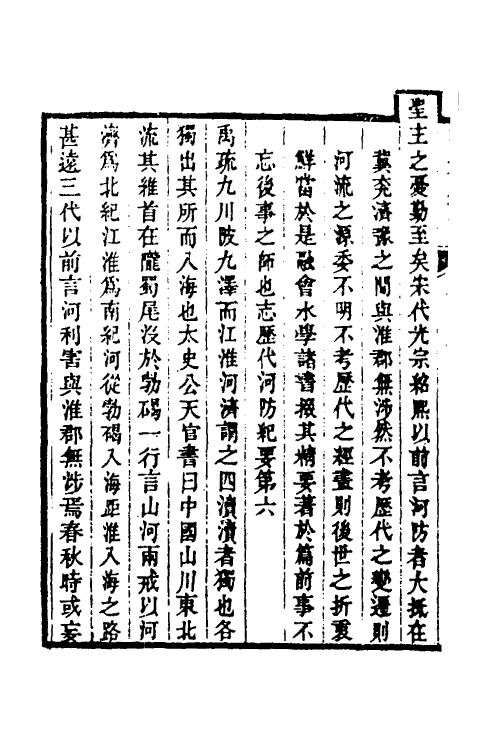 聖主之憂勤至矣宋代光宗紹熙以前言河防者大抵在
冀兖濟豫之間與淮郡無涉然不考歷代之變遷則
河流之源委不明不考歷代之經畫則後世之折衷
鮮當於是融會水學諸書掇其精要著於篇前事不
忘後事之師也志歷代河防紀要第六
禹疏九川陂九澤而江淮河濟謂之四瀆瀆者獨也各
獨出其所而入海也太史公天官書曰中國山川東北
流其維首在隴蜀尾沒於勃碣一行言山河兩戒以河
濟爲北紀江淮爲南紀河從勃碣入海距淮入海之路
甚遠三代以前言河利害與淮郡無涉焉春秋時或妄